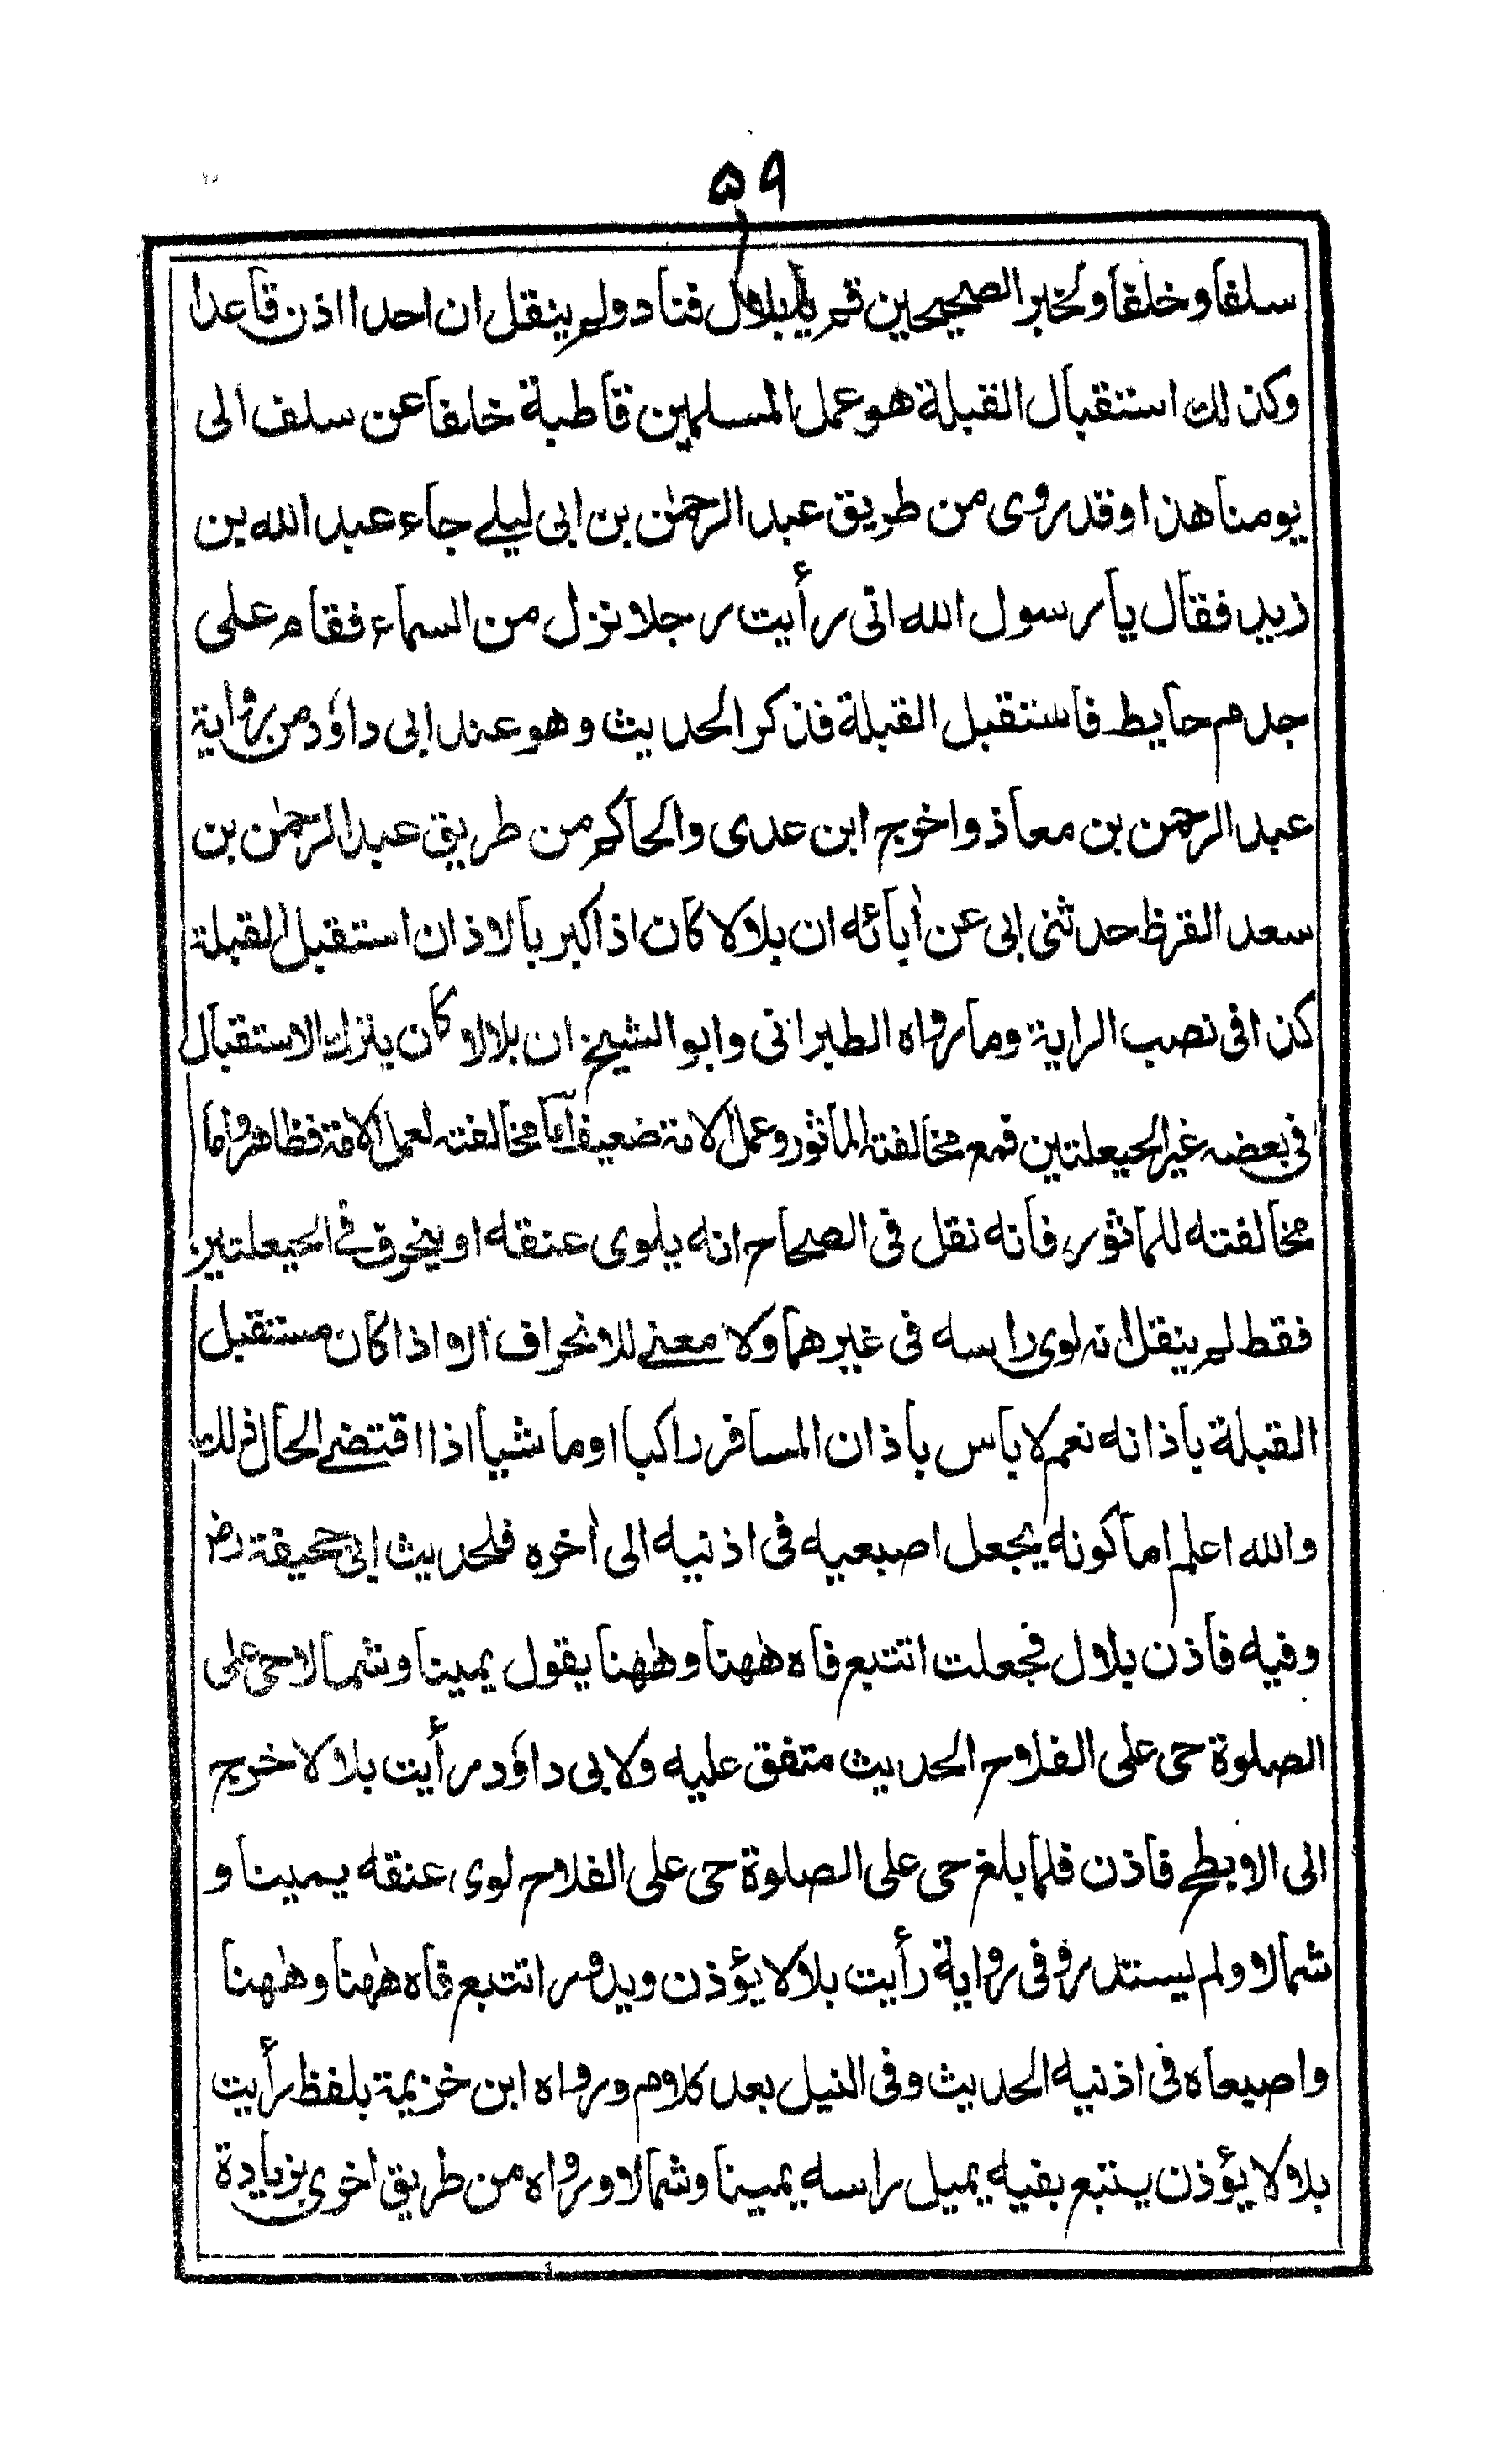 ۵۹
سلفا وخلفا ولخبر الصحيحين قم يا بلال فناد ولم ينقل ان احدا اذن قاعدا
وكذلك استقبال القبلة هو عمل المسلمين قاطبة خلفا عن سلف الى
يومنا هذا وقد روى من طريق عبد الرحمٰن بن ابى ليلے جاء عبد الله بن
زيد فقال يا رسول الله انى رأيت رجلا نزل من السماء فقام على
جدم حايط فاستقبل القبلة فذكر الحديث وهو عند ابى داؤد من رواية
عبد الرحمن بن معاذ واخرج ابن عدى والحاكم من طريق عبد الرحمٰن بن
سعد القرظ حدثنى ابى عن أبائه ان بلالا كان اذا كبر بالاذان استقبل القبلة
كذا فى نصب الراية وما رواه الطبرانى وابو الشيخ ان بلالا كان يترك الاستقبال
فى بعضه غير الحيعلتين فمع مخالفته المأثور وعمل الامة ضعيف اما مخالفته لعمل الامة فظاهر واما
مخالفته للماثور فانه نقل فى الصحاح انه يلوى عنقه او ينحرف فے الحيعلتين
فقط لم ينقل انه لوى راسه فى غيرهما ولا معنے للانحراف الا اذا كان مستقبل
القبلة باذانه نعم لا باس باذان المسافر راكبا او ماشيا اذا اقتضے الحال ذلك
والله اعلم اما كونه يجعل اصبعيه فى اذنيه الى أخره فلحديث ابى جحيفة رضـ
وفيه فاذن بلال فجعلت اتتبع فاه هٰهنا وهٰهنا يقول يمينا وشمالا حى على
الصلوة حى على الفلاح الحديث متفق عليه ولابى داؤد رأيت بلالا خرج
الى الابطح فاذن فلما بلغ حى على الصلوة حى على الفلاح لوى عنقه يمينا و
شمالا ولم يستدر وفى رواية رأيت بلالا يؤذن ويدور اتتبع فاه هٰهنا وهٰهنا
واصبعاه فى اذنيه الحديث وفى النيل بعد كلام ورواه ابن خزيمة بلفظ رأيت
بلالا يؤذن يتتبع بفيه يميل راسه يمينا وشمالا ورواه من طريق اخرى بزيادة